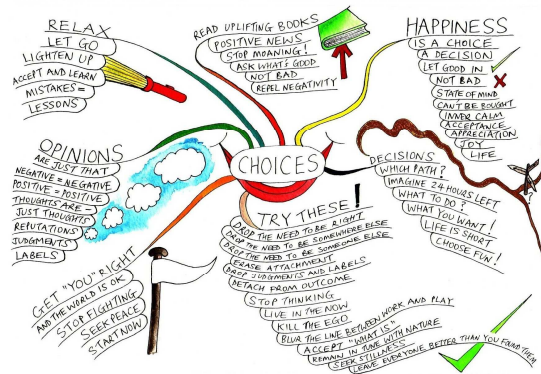 RELAX
LET GO
LIGHTEN UP
ACCEPT AND LEARN
MISTAKES =
LESSONS
READ UPLIFTING BOOKS
POSITIVE NEWS
STOP MOANING!
ASK WHAT'S GOOD
NOT BAD
REPEL NEGATIVITY
HAPPINESS
IS A CHOICE
A DECISION
LET GOOD IN
NOT BAD
STATE OF MIND
CAN'T BE BOUGHT
INNER CALM
ACCEPTANCE
APPRECIATION
JOY
LIFE
OPINIONS
ARE JUST THAT
NEGATIVE = NEGATIVE
POSITIVE = POSITIVE
THOUGHTS ARE
JUST THOUGHTS
REPUTATIONS
JUDGMENTS
LABELS
CHOICES
DECISIONS
WHICH PATH?
IMAGINE 24 HOURS LEFT
WHAT TO DO?
WHAT YOU WANT!
LIFE IS SHORT
CHOOSE FUN!
GET "YOU" RIGHT
AND THE WORLD IS OK
STOP FIGHTING
SEEK PEACE
START NOW
TRY THESE!
DROP THE NEED TO BE RIGHT
DROP THE NEED TO BE SOMEWHERE ELSE
DROP THE NEED TO BE SOMEONE ELSE
ERASE ATTACHMENT
DROP JUDGMENTS AND LABELS
DETACH FROM OUTCOME
STOP THINKING
LIVE IN THE NOW
KILL THE EGO
BLUR THE LINE BETWEEN WORK AND PLAY
ACCEPT "WHAT IS"
REMAIN IN TUNE WITH NATURE
SEEK STILLNESS
LEAVE EVERYONE BETTER THAN YOU FOUND THEM